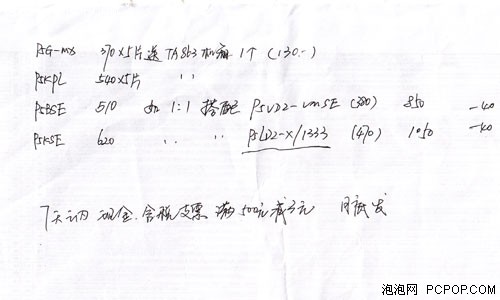 P5G-MX 370×5片送TA863机箱1个(130.-)
P5KPL 540×5片 〃
P5BSE 510 如1:1搭配P5VD2-VMSE (380) 850 -40
P5KSE 620 〃 〃 P5LD2-X/1333 (470) 1050 -40
7天之内 现金.含税支票 满500元减3元 月底发
泡泡网 PCPOP.COM